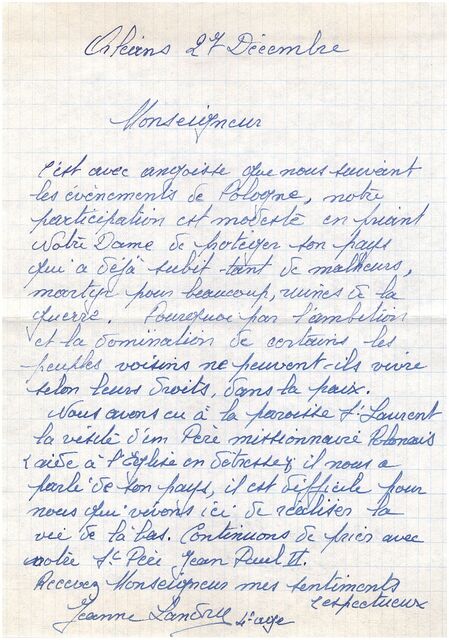 Orléans 27 Décembre
Monseigneur
C'est avec angoisse que nous suivant
les évènements de Pologne, notre
participation est modeste en priant
Notre Dame de protéger son pays
qui a déjà subit tant de malheurs,
martyr pour beaucoup, ruines de la
guerre. Pourquoi par l'ambition
et la domination de certains les
peuples voisins ne peuvent-ils vivre
selon leurs droits, dans la paix.
Nous avons eu à la paroisse St Laurent
la visite d'un Père missionnaire Polonais
(aide à l'Eglise en détresse) il nous a
parlé de son pays, il est difficile pour
nous qui vivons ici de réaliser la
vie de là bas. Continuons de prier avec
notre St Père Jean Paul II.
Recevez Monseigneur mes sentiments
respectueux
Jeanne Landry age